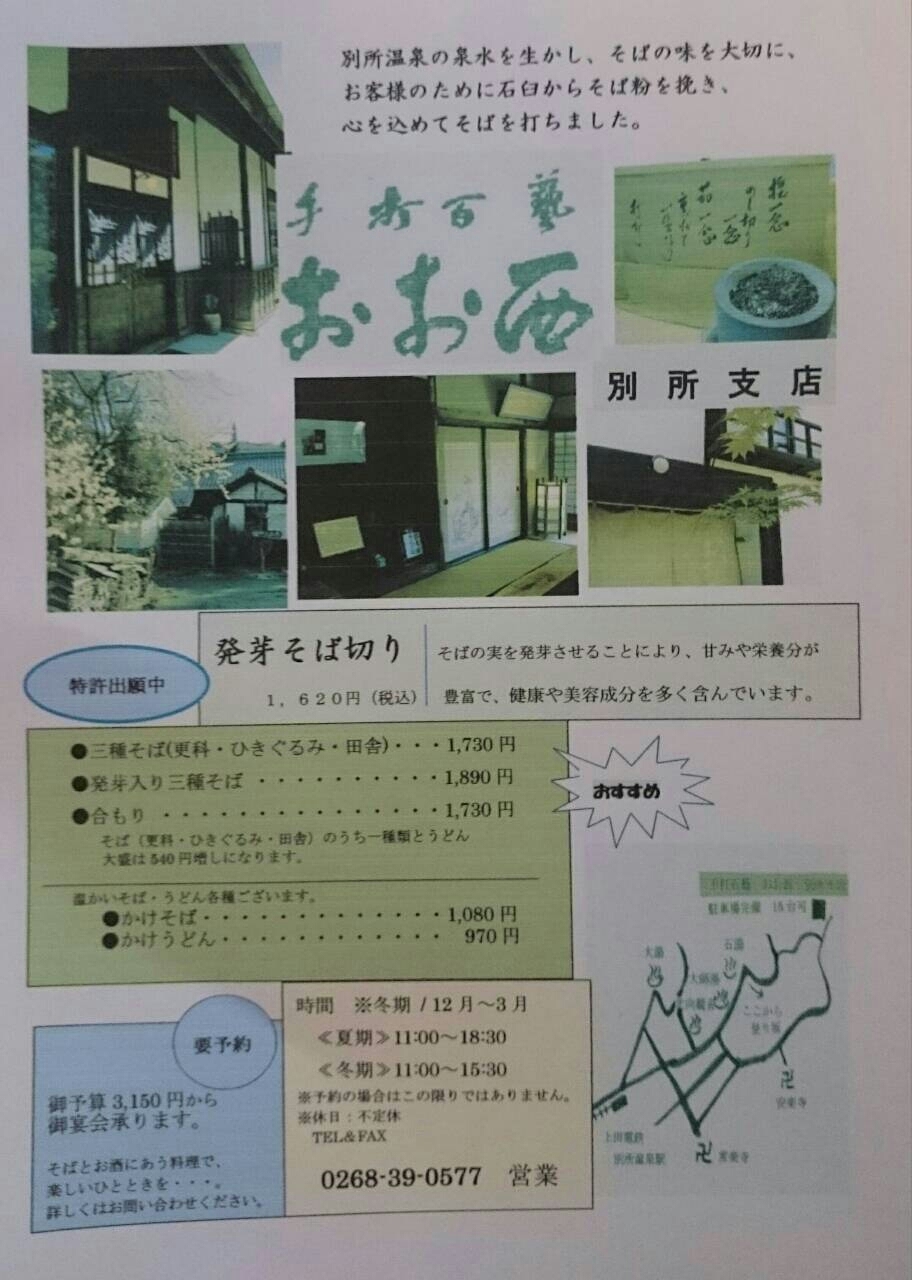 別所温泉の泉水を生かし、そばの味を大切に、
お客様のために石臼からそば粉を挽き、
心を込めてそばを打ちました。
手打百藝
おお西
別所支店
発芽そば切り
1,620円（税込）
そばの実を発芽させることにより、甘みや栄養分が
豊富で、健康や美容成分を多く含んでいます。
特許出願中
●三種そば(更科・ひきぐるみ・田舎)・・・1,730円
●発芽入り三種そば ・・・・・・・・・・1,890円
●合もり ・・・・・・・・・・・・・・・1,730円
そば（更科・ひきぐるみ・田舎）のうち一種類とうどん
大盛は540円増しになります。
おすすめ
温かいそば・うどん各種ございます。
●かけそば・・・・・・・・・・・・・1,080円
●かけうどん・・・・・・・・・・・・ 970円
時間 ※冬期 / 12月～3月
≪夏期≫11:00～18:30
≪冬期≫11:00～15:30
※予約の場合はこの限りではありません。
※休日：不定休
TEL&FAX
0268-39-0577 営業
要予約
御予算3,150円から
御宴会承ります。
そばとお酒にあう料理で、
楽しいひとときを・・・。
詳しくはお問い合わせください。
駐車場完備 18台可
大湯
石湯
ここから
登り坂
安楽寺
常楽寺
上田電鉄
別所温泉駅